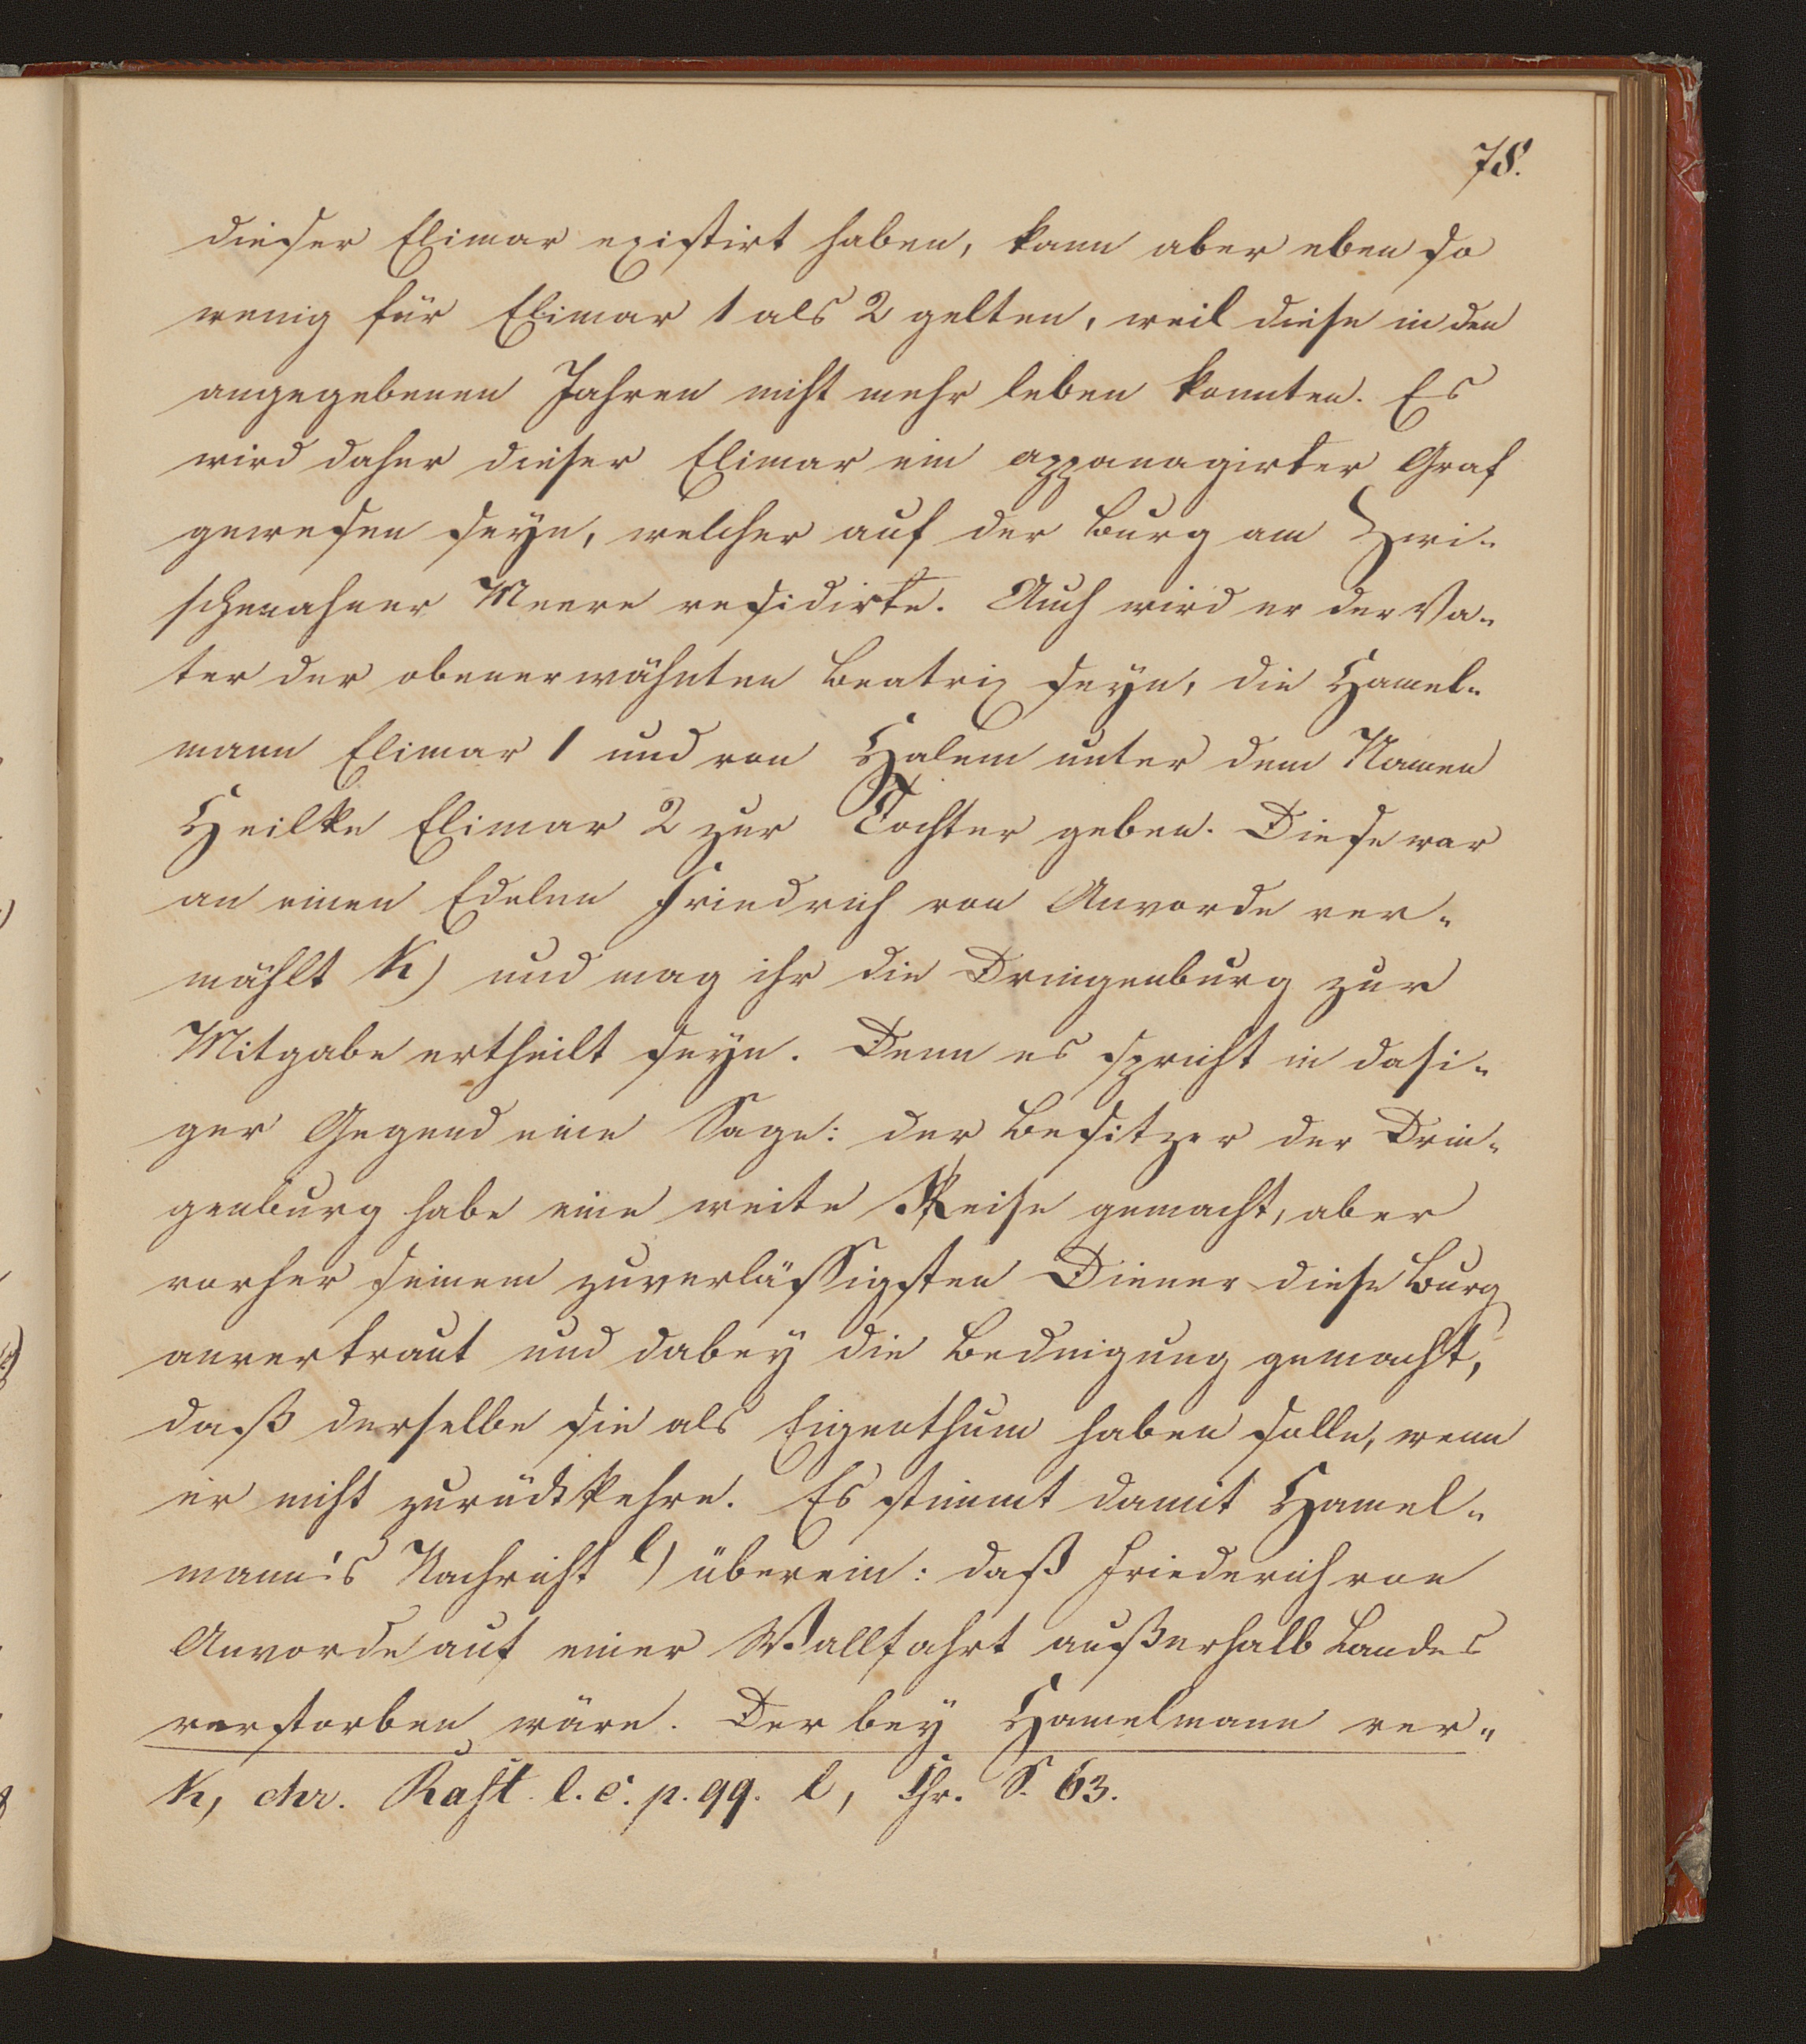 78.
dieser Elimar existirt haben, kann aber eben so
wenig für Elimar 1 als 2 gelten, weil diese in den
angegebenen Jahren nicht mehr leben konnten. Es
wird daher dieser Elimar ein appanagirter Graf
gewesen seyn, welcher auf der Burg am Zwi-
schenahner Meere residirte. Auch wird er der Va-
ter der obenerwähnten Beatrix seyn, die Hamel-
mann Elimar 1 und von Halem unter dem Namen
Heilke Elimar 2 zur Tochter geben. Diese war
an einen Edelen Friedrich von Anvorde ver-
mählt k) und mag ihr die Dringenburg zur
Mitgabe ertheilt seyn. Denn es spricht in dasi-
ger Gegend eine Sage: der Besitzer der Drin-
genburg habe eine weite Reise gemacht, aber
vorher seinem zuverlässigsten Diener diese Burg
anvertraut und dabey die Bedingung gemacht,
daß derselbe sie als Eigenthum haben solle, wenn
er nicht zurückkehre. Es stimmt damit Hamel-
mann's Nachricht l) überein: daß Friederich von
Anvorde auf einer Wallfahrt außerhalb Landes
verstorben wäre. Der bey Hamelmann ver-
k, chr. Rast. l. c. p. 99. l, Chr. S. 63.